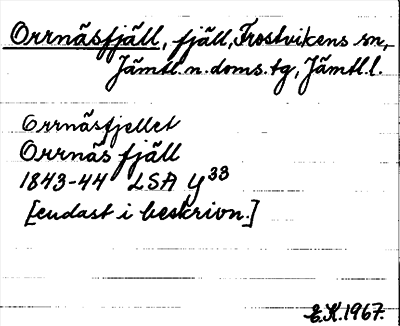 Orrnäsfjäll, fjäll, Frostvikens sn,
Jämtl.n.doms.tg, Jämtl.l.
Orrnäsfjellet
Orrnäs fjäll
1843-44 LSA Y³³
[endast i beskrivn.]
E.K.1967.